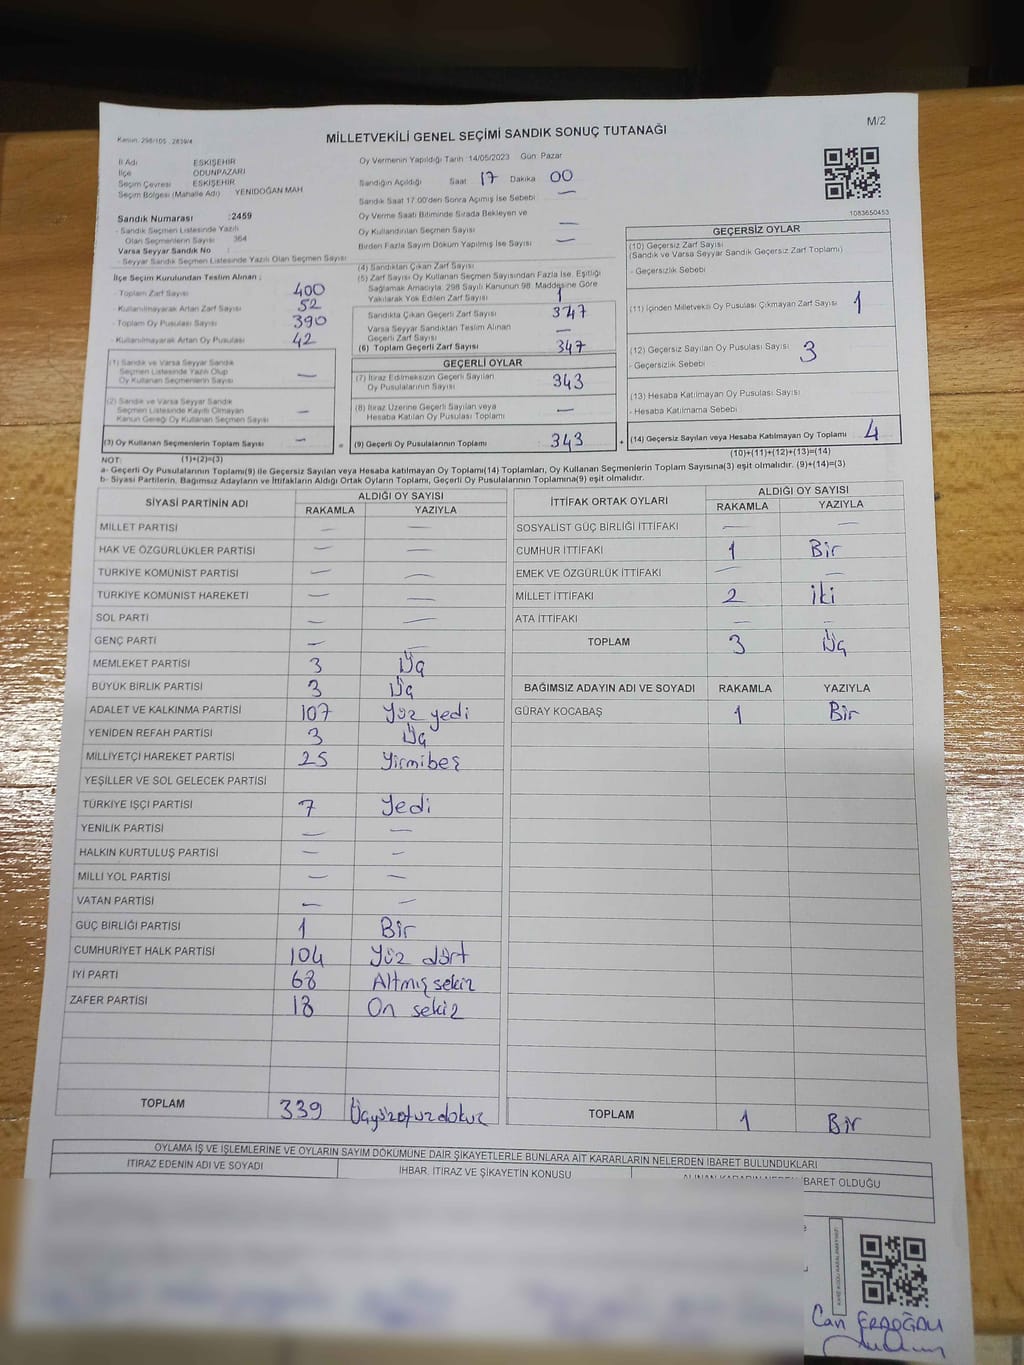 M/2
Kanun: 298/105 , 2839/4
MİLLETVEKİLİ GENEL SEÇİMİ SANDIK SONUÇ TUTANAĞI
İl Adı ESKİŞEHİR
İlçe ODUNPAZARI
Seçim Çevresi ESKİŞEHİR
Seçim Bölgesi (Mahalle Adı) YENİDOĞAN MAH
Sandık Numarası :2459
- Sandık Seçmen Listesinde Yazılı
Olan Seçmenlerin Sayısı 364
Varsa Seyyar Sandık No :
- Seyyar Sandık Seçmen Listesinde Yazılı Olan Seçmen Sayısı
Oy Vermenin Yapıldığı Tarih :14/05/2023 Gün: Pazar
Sandığın Açıldığı Saat 17 Dakika 00
Sandık Saat 17.00'den Sonra Açılmış İse Sebebi —
Oy Verme Saati Bitiminde Sırada Bekleyen ve
Oy Kullandırılan Seçmen Sayısı —
Birden Fazla Sayım Döküm Yapılmış İse Sayısı —
1083650453
İlçe Seçim Kurulundan Teslim Alınan ;
- Toplam Zarf Sayısı 400
- Kullanılmayarak Artan Zarf Sayısı 52
- Toplam Oy Pusulası Sayısı 390
- Kullanılmayarak Artan Oy Pusulası 42
(1) Sandık ve Varsa Seyyar Sandık
Seçmen Listesinde Yazılı Olup
Oy Kullanan Seçmenlerin Sayısı —
(2) Sandık ve Varsa Seyyar Sandık
Seçmen Listesinde Kayıtlı Olmayan
Kanun Gereği Oy Kullanan Seçmen Sayısı —
(3) Oy Kullanan Seçmenlerin Toplam Sayısı — =
(4) Sandıktan Çıkan Zarf Sayısı
(5) Zarf Sayısı Oy Kullanan Seçmen Sayısından Fazla İse, Eşitliği
Sağlamak Amacıyla; 298 Sayılı Kanunun 98. Maddesine Göre
Yakılarak Yok Edilen Zarf Sayısı 1
Sandıkta Çıkan Geçerli Zarf Sayısı 347
Varsa Seyyar Sandıktan Teslim Alınan
Geçerli Zarf Sayısı —
(6) Toplam Geçerli Zarf Sayısı 347
GEÇERLİ OYLAR
(7) İtiraz Edilmeksizin Geçerli Sayılan
Oy Pusulalarının Sayısı 343
(8) İtiraz Üzerine Geçerli Sayılan veya
Hesaba Katılan Oy Pusulası Toplamı —
(9) Geçerli Oy Pusulalarının Toplamı 343 +
GEÇERSİZ OYLAR
(10) Geçersiz Zarf Sayısı
(Sandık ve Varsa Seyyar Sandık Geçersiz Zarf Toplamı)
- Geçersizlik Sebebi
(11) İçinden Milletvekili Oy Pusulası Çıkmayan Zarf Sayısı 1
(12) Geçersiz Sayılan Oy Pusulası Sayısı 3
- Geçersizlik Sebebi
(13) Hesaba Katılmayan Oy Pusulası Sayısı
- Hesaba Katılmama Sebebi
(14) Geçersiz Sayılan veya Hesaba Katılmayan Oy Toplamı 4
NOT: (1)+(2)=(3) (10)+(11)+(12)+(13)=(14)
a- Geçerli Oy Pusulalarının Toplamı(9) ile Geçersiz Sayılan veya Hesaba katılmayan Oy Toplamı(14) Toplamları, Oy Kullanan Seçmenlerin Toplam Sayısına(3) eşit olmalıdır. (9)+(14)=(3)
b- Siyasi Partilerin, Bağımsız Adayların ve İttifakların Aldığı Ortak Oyların Toplamı, Geçerli Oy Pusulalarının Toplamına(9) eşit olmalıdır.
SİYASİ PARTİNİN ADI ALDIĞI OY SAYISI
RAKAMLA YAZIYLA
MİLLET PARTİSİ — —
HAK VE ÖZGÜRLÜKLER PARTİSİ — —
TÜRKİYE KOMÜNİST PARTİSİ — —
TÜRKİYE KOMÜNİST HAREKETİ — —
SOL PARTİ — —
GENÇ PARTİ — —
MEMLEKET PARTİSİ 3 Üç
BÜYÜK BİRLİK PARTİSİ 3 Üç
ADALET VE KALKINMA PARTİSİ 107 Yüz yedi
YENİDEN REFAH PARTİSİ 3 Üç
MİLLİYETÇİ HAREKET PARTİSİ 25 Yirmibeş
YEŞİLLER VE SOL GELECEK PARTİSİ
TÜRKİYE İŞÇİ PARTİSİ 7 Yedi
YENİLİK PARTİSİ — —
HALKIN KURTULUŞ PARTİSİ — —
MİLLİ YOL PARTİSİ — —
VATAN PARTİSİ — —
GÜÇ BİRLİĞİ PARTİSİ 1 Bir
CUMHURİYET HALK PARTİSİ 104 Yüz dört
İYİ PARTİ 68 Altmış sekiz
ZAFER PARTİSİ 18 On sekiz
TOPLAM 339 Üçyüzotuzdokuz
İTTİFAK ORTAK OYLARI ALDIĞI OY SAYISI
RAKAMLA YAZIYLA
SOSYALİST GÜÇ BİRLİĞİ İTTİFAKI — —
CUMHUR İTTİFAKI 1 Bir
EMEK VE ÖZGÜRLÜK İTTİFAKI — —
MİLLET İTTİFAKI 2 İki
ATA İTTİFAKI — —
TOPLAM 3 Üç
BAĞIMSIZ ADAYIN ADI VE SOYADI RAKAMLA YAZIYLA
GÜRAY KOCABAŞ 1 Bir
TOPLAM 1 Bir
OYLAMA İŞ VE İŞLEMLERİNE VE OYLARIN SAYIM DÖKÜMÜNE DAİR ŞİKAYETLERLE BUNLARA AİT KARARLARIN NELERDEN İBARET BULUNDUKLARI
İTİRAZ EDENİN ADI VE SOYADI İHBAR, İTİRAZ VE ŞİKAYETİN KONUSU BARET OLDUĞU
Can